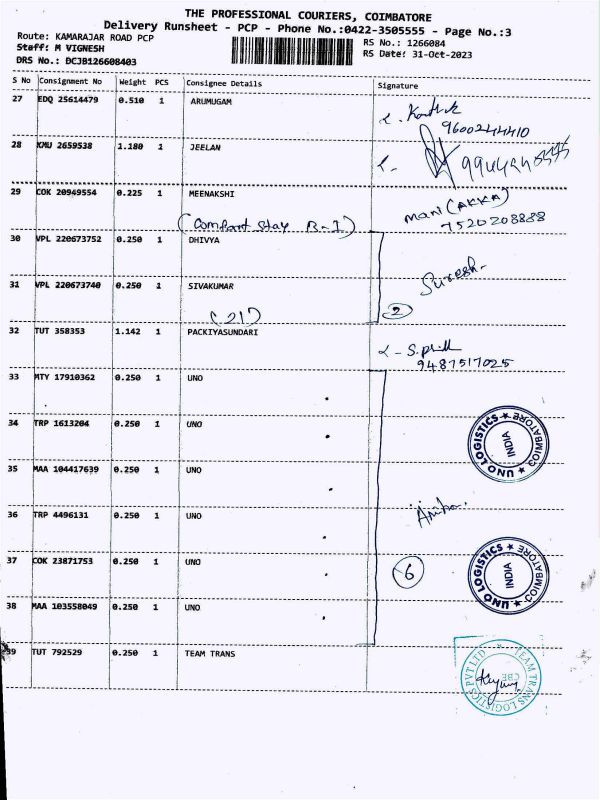 THE PROFESSIONAL COURIERS, COIMBATORE
Delivery Runsheet - PCP - Phone No.:0422-3505555 - Page No.:3
Route: KAMARAJAR ROAD PCP
RS No.: 1266084
Staff: M VIGNESH
RS Date: 31-Oct-2023
DRS No.: DCJB126608403
S No Consignment No Weight PCS Consignee Details Signature
27 EDQ 25614479 0.510 1 ARUMUGAM
9600244410
28 KMU 2659538 1.180 1 JEELAN
29 COK 20949554 0.225 1 MEENAKSHI
Mani (AKKA)
7520208888
(Comfort Stay B-1)
30 VPL 220673752 0.250 1 DHIVYA
Suresh
31 VPL 220673740 0.250 1 SIVAKUMAR
2
(21)
32 TUT 358353 1.142 1 PACKIYASUNDARI
9487517025
33 MTY 17910362 0.250 1 UNO
34 TRP 1613204 0.250 1 UNO
UNO LOGISTICS ★ COIMBATORE ★
INDIA
35 MAA 104417639 0.250 1 UNO
36 TRP 4496131 0.250 1 UNO
37 COK 23871753 0.250 1 UNO
6
UNO LOGISTICS ★ COIMBATORE ★
INDIA
38 MAA 103558049 0.250 1 UNO
39 TUT 792529 0.250 1 TEAM TRANS
TEAM TRANS LOGISTICS PVT LTD
CBE